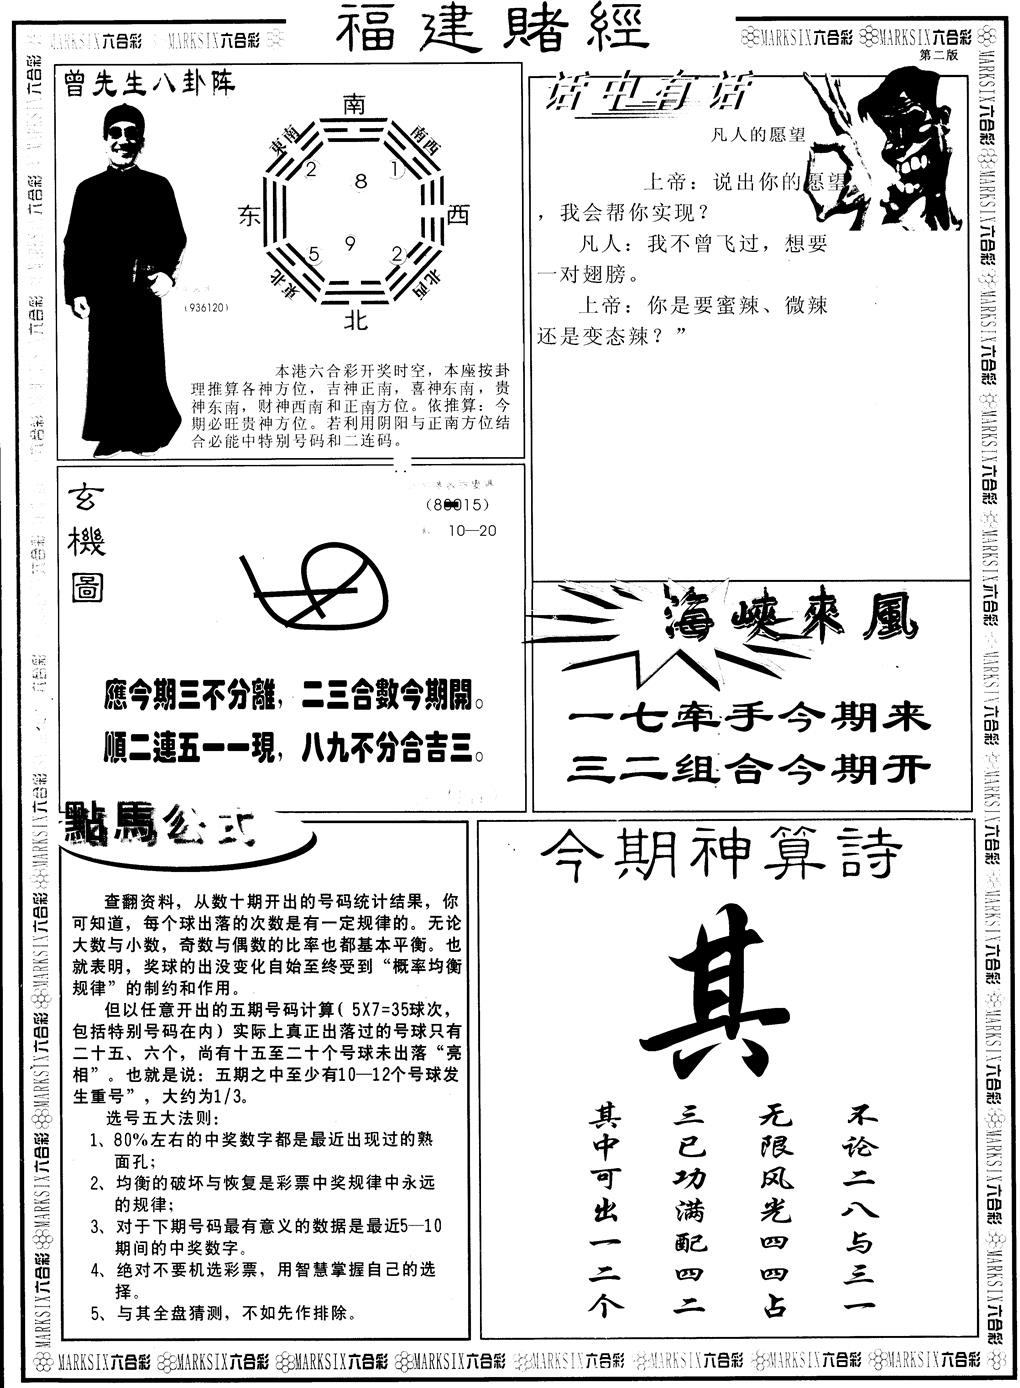 福建賭經
MARKSIX六合彩 MARKSIX六合彩
MARKSIX六合彩 MARKSIX六合彩
第二版
曾先生八卦阵
南
東南
南西
2
8
1
东
西
5
9
2
東北
北西
北
(936120)
本港六合彩开奖时空，本座按卦
理推算各神方位，吉神正南，喜神东南，贵
神东南，财神西南和正南方位。依推算：今
期必旺贵神方位。若利用阴阳与正南方位结
合必能中特别号码和二连码。
话中有话
凡人的愿望
上帝：说出你的愿望
，我会帮你实现？
凡人：我不曾飞过，想要
一对翅膀。
上帝：你是要蜜辣、微辣
还是变态辣？”
玄機圖
10—20
應今期三不分離，二三合數今期開。
順二連五一一現，八九不分合吉三。
海峽來風
一七牵手今期来
三二组合今期开
點馬公式
查翻资料，从数十期开出的号码统计结果，你
可知道，每个球出落的次数是有一定规律的。无论
大数与小数，奇数与偶数的比率也都基本平衡。也
就表明，奖球的出没变化自始至终受到“概率均衡
规律”的制约和作用。
但以任意开出的五期号码计算( 5X7=35球次，
包括特别号码在内) 实际上真正出落过的号球只有
二十五、六个，尚有十五至二十个号球未出落“亮
相”。也就是说：五期之中至少有10—12个号球发
生重号”，大约为1/3。
选号五大法则：
1、80%左右的中奖数字都是最近出现过的熟
面孔；
2、均衡的破坏与恢复是彩票中奖规律中永远
的规律；
3、对于下期号码最有意义的数据是最近5—10
期间的中奖数字。
4、绝对不要机选彩票，用智慧掌握自己的选
择。
5、与其全盘猜测，不如先作排除。
今期神算詩
其
不论二八与三一
无限风光四四占
三已功满配四二
其中可出一二个
MARKSIX六合彩 MARKSIX六合彩 MARKSIX六合彩 MARKSIX六合彩 MARKSIX六合彩 MARKSIX六合彩 MARKSIX六合彩 MARKSIX六合彩